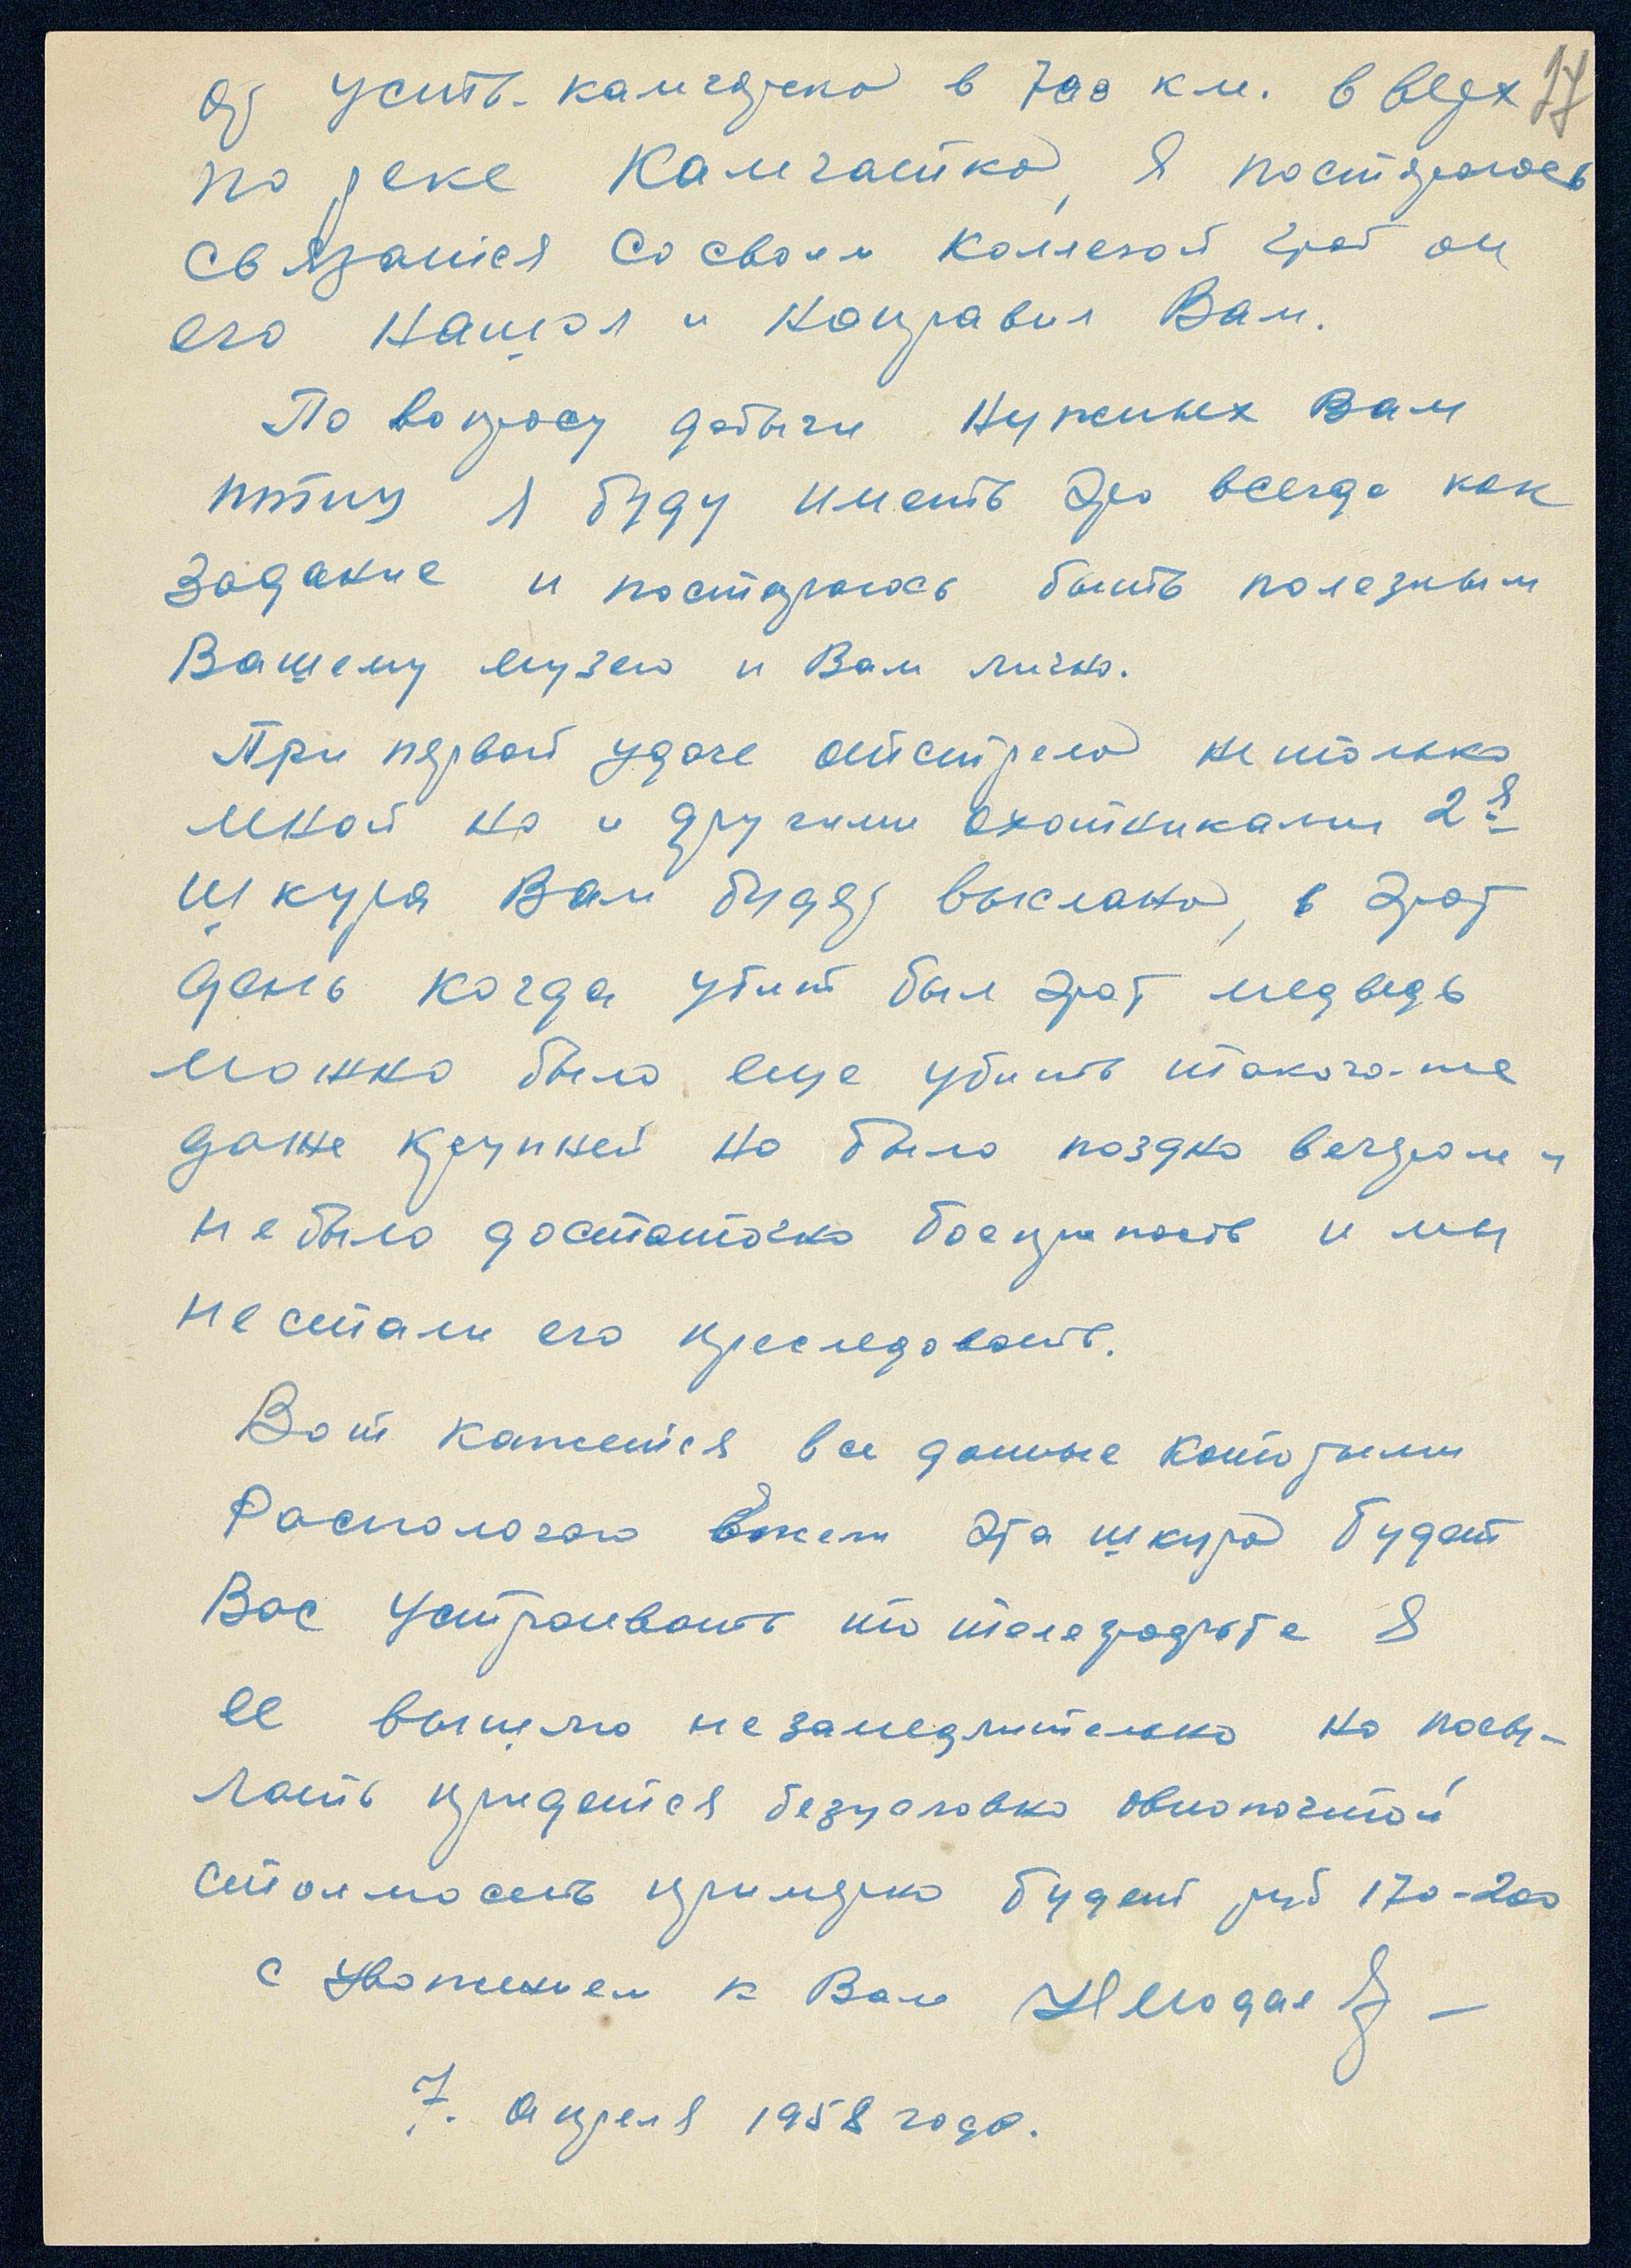 17
от Усть-камчатска в 700 км. в верх
по реке Камчатка, Я постараюсь
связатся со своем колегой чтоб он
его нашол и направил Вам.
По вопросу добычи нужных Вам
птиц я буду иметь это всегда как
задание и постараюсь быть полезным
Вашему музею и Вам лично.
При первой удаче отстрела не только
мной но и другими охотниками 2я
шкура Вам будет выслана, в этот
день когда убит был этот медведь
можно было еще убить такого-же
даже крупней но было поздно вечером и
не было достаточно боеприпасов и мы
не стали его преследовать.
Вот кажется все данные которыми
Распологаю если эта шкура будет
Вас Устраивать то телеграфьте Я
ее вышлю незамедлительно но посы-
лать придется безусловно авиопочтой
стоимость примерно будет руб 170-200
с Уважением к Вам
7. Апреля 1958 года.